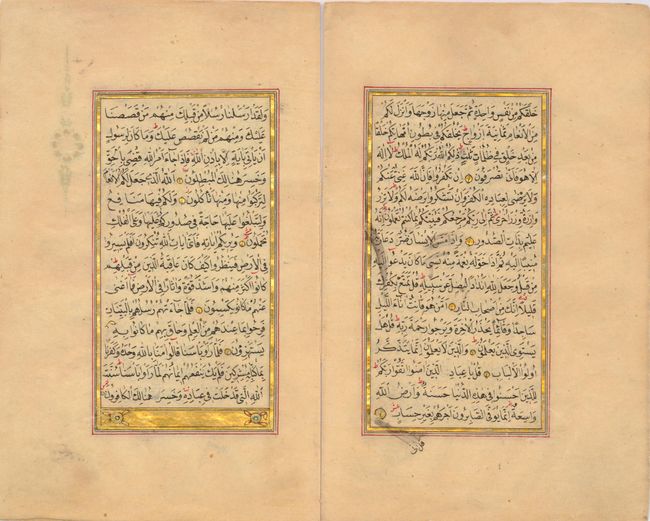 خلقكم من نفس واحدة ثم جعل منها زوجها وانزل لكم
من الانعام ثمانية ازواج يخلقكم في بطون امهاتكم خلقا
من بعد خلق في ظلمات ثلث ذلكم الله ربكم له الملك لا اله
الا هو فانى تصرفون ان تكفروا فان الله غني عنكم
ولا يرضى لعباده الكفر وان تشكروا يرضه لكم ولا تزر
وازرة وزر اخرى ثم الى ربكم مرجعكم فينبئكم بما كنتم تعملون انه
عليم بذات الصدور واذا مس الانسان ضر دعا ربه
منيبا اليه ثم اذا خوله نعمة منه نسي ما كان يدعوا اليه
من قبل وجعل لله اندادا ليضل عن سبيله قل تمتع بكفرك
قليلا انك من اصحاب النار امن هو قانت اناء الليل
ساجدا وقائما يحذر الاخرة ويرجو رحمة ربه قل هل
يستوي الذين يعلمون والذين لا يعلمون انما يتذكر
اولوا الالباب قل يا عباد الذين امنوا اتقوا ربكم
للذين احسنوا في هذه الدنيا حسنة وارض الله
واسعة انما يوفى الصابرون اجرهم بغير حساب
قل اني
ولقد ارسلنا رسلا من قبلك منهم من قصصنا
عليك ومنهم من لم نقصص عليك وما كان لرسول
ان ياتي باية الا باذن الله فاذا جاء امر الله قضي بالحق
وخسر هنالك المبطلون الله الذي جعل لكم الانعام
لتركبوا منها ومنها تاكلون ولكم فيها منافع
ولتبلغوا عليها حاجة في صدوركم وعليها وعلى الفلك
تحملون ويريكم اياته فاي ايات الله تنكرون افلم يسيروا
في الارض فينظروا كيف كان عاقبة الذين من قبلهم
كانوا اكثر منهم واشد قوة واثارا في الارض فما اغنى
عنهم ما كانوا يكسبون فلما جاءتهم رسلهم بالبينات
فرحوا بما عندهم من العلم وحاق بهم ما كانوا به
يستهزؤن فلما راوا باسنا قالوا امنا بالله وحده وكفرنا
بما كنا به مشركين فلم يك ينفعهم ايمانهم لما راوا باسنا سنت
الله التي قد خلت في عباده وخسر هنالك الكافرون